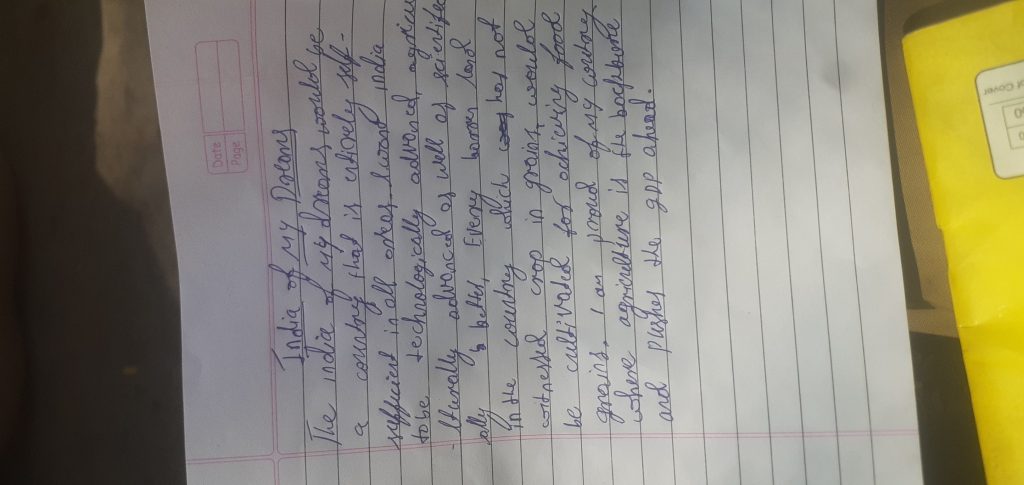 Date
Page
India of my Dreams
The india of my dreams would be
a country that is entirely self-
sufficient in all areas. I want India
to be technologically advanced, agricu
-lturally advanced as well as scientific
ally better. Every barren land
in the country which has not
witnessed crop in grains would
be cultivated for achieving food
grains. I am proud of my country
where agriculture is the backbone
and pushes the gdp ahead.
of Cover